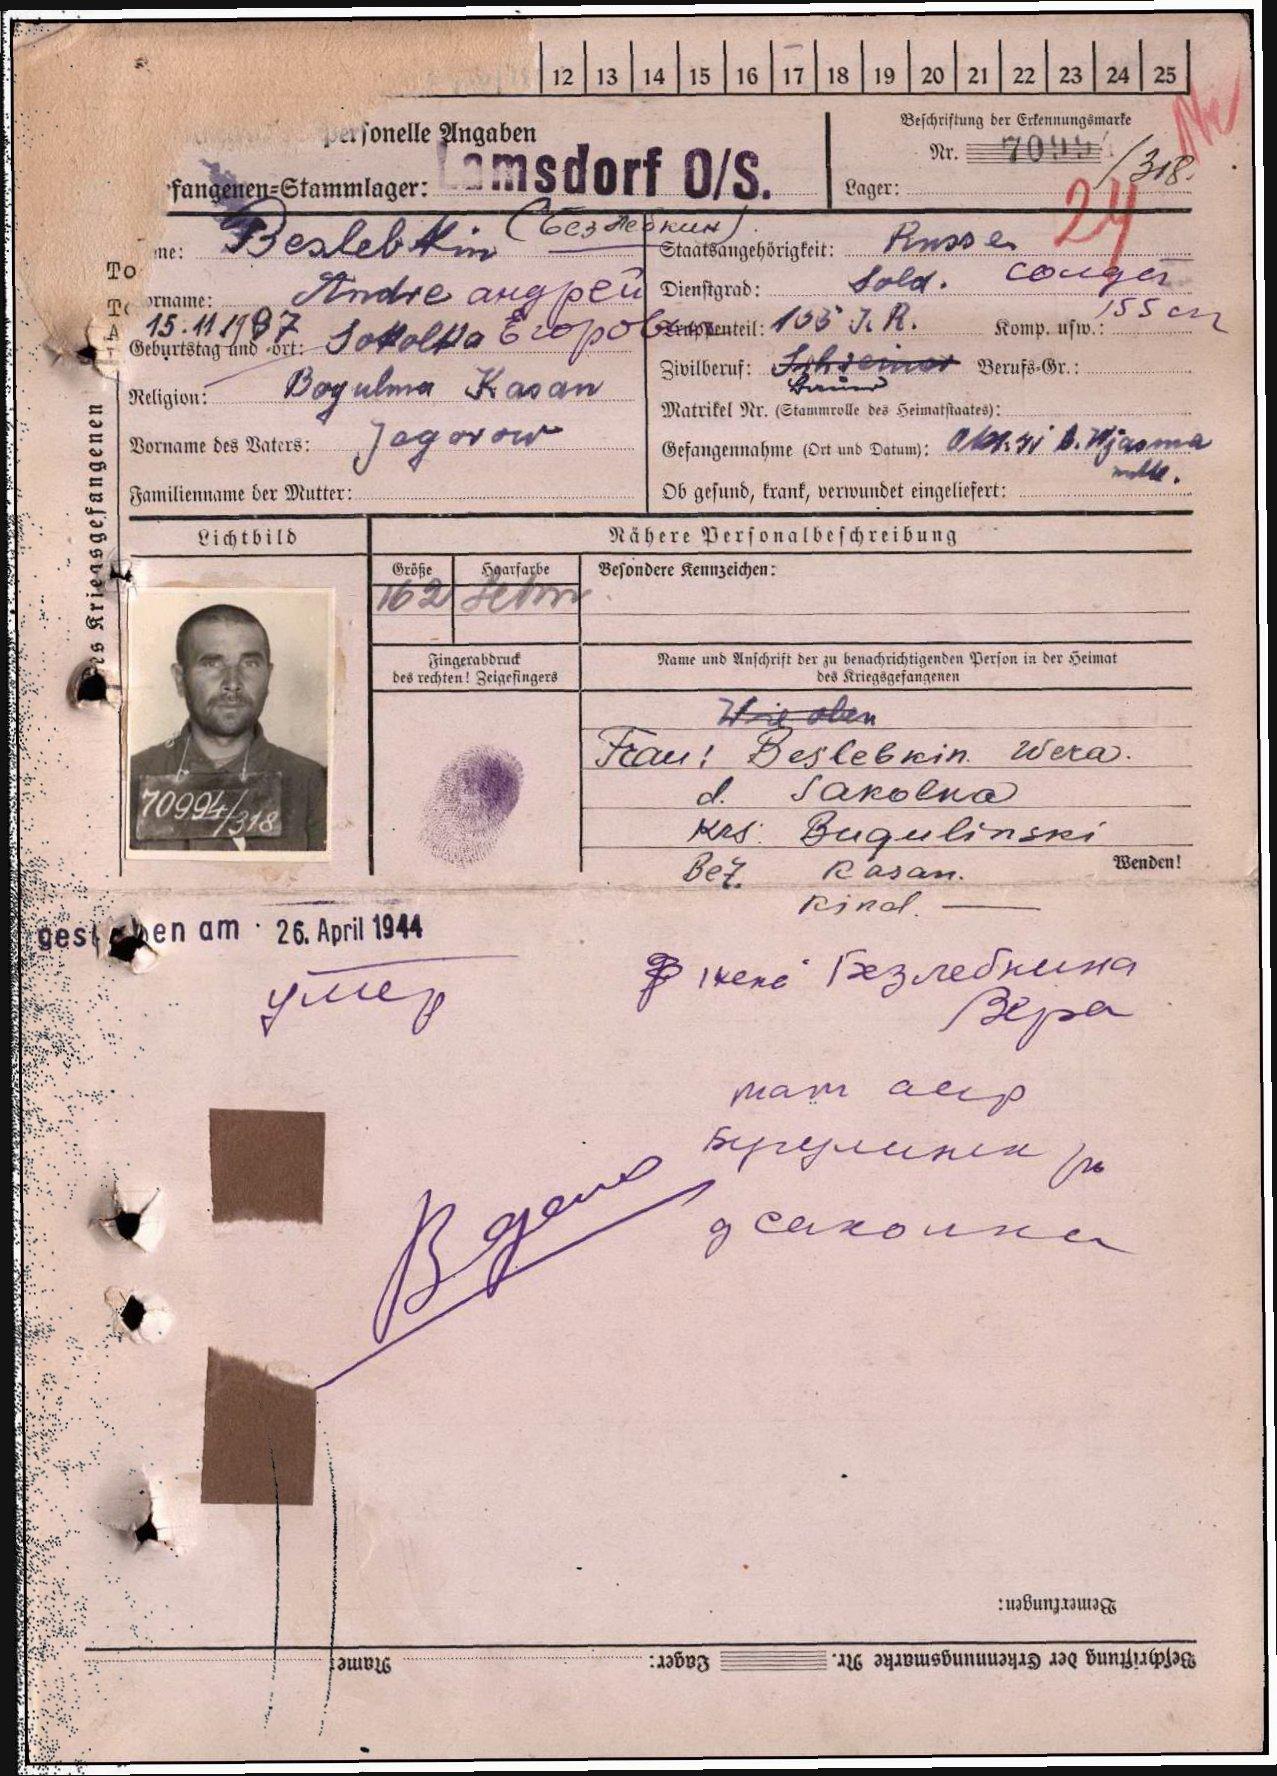 12 13 14 15 16 17 18 19 20 21 22 23 24 25
Personelle Angaben
Beschriftung der Erkennungsmarke
Nr. 70994
/318.
fangenen-Stammlager: Lamsdorf O/S.
Lager:
24
me: Beslebkin (Безлебкин)
Staatsangehörigkeit: Russe
orname: Andre андрей
Dienstgrad: Sold. солдат
15.11.1907 Sokolka Егорович
Geburtstag und -ort:
Truppenteil: 155 I.R. Komp. usw.: 155 сп
Zivilberuf: Schreiner Berufs-Gr.:
Bauer
Religion: Bogulma Kasan
Matrikel Nr. (Stammrolle des Heimatstaates):
Vorname des Vaters: Jagorow
Gefangennahme (Ort und Datum): Okt. 41 b. Wjasma
Familienname der Mutter:
Ob gesund, krank, verwundet eingeliefert:
des Kriegsgefangenen
Lichtbild
Nähere Personalbeschreibung
Größe Haarfarbe Besondere Kennzeichen:
162 schw.
Fingerabdruck
des rechten! Zeigefingers
Name und Anschrift der zu benachrichtigenden Person in der Heimat
des Kriegsgefangenen
70994/318
Wie oben
Frau: Beslebkin Wera.
d. Sakolka
Krs: Bugulinski
Bez. Kasan.
Wenden!
Kind. —
gestorben am 26. April 1944
умер
жена Безлебкина
Вера
тат асср
Бугулинск рн
д саколка
Bemerkungen:
Beschriftung der Erkennungsmarke Nr. Lager: Name: